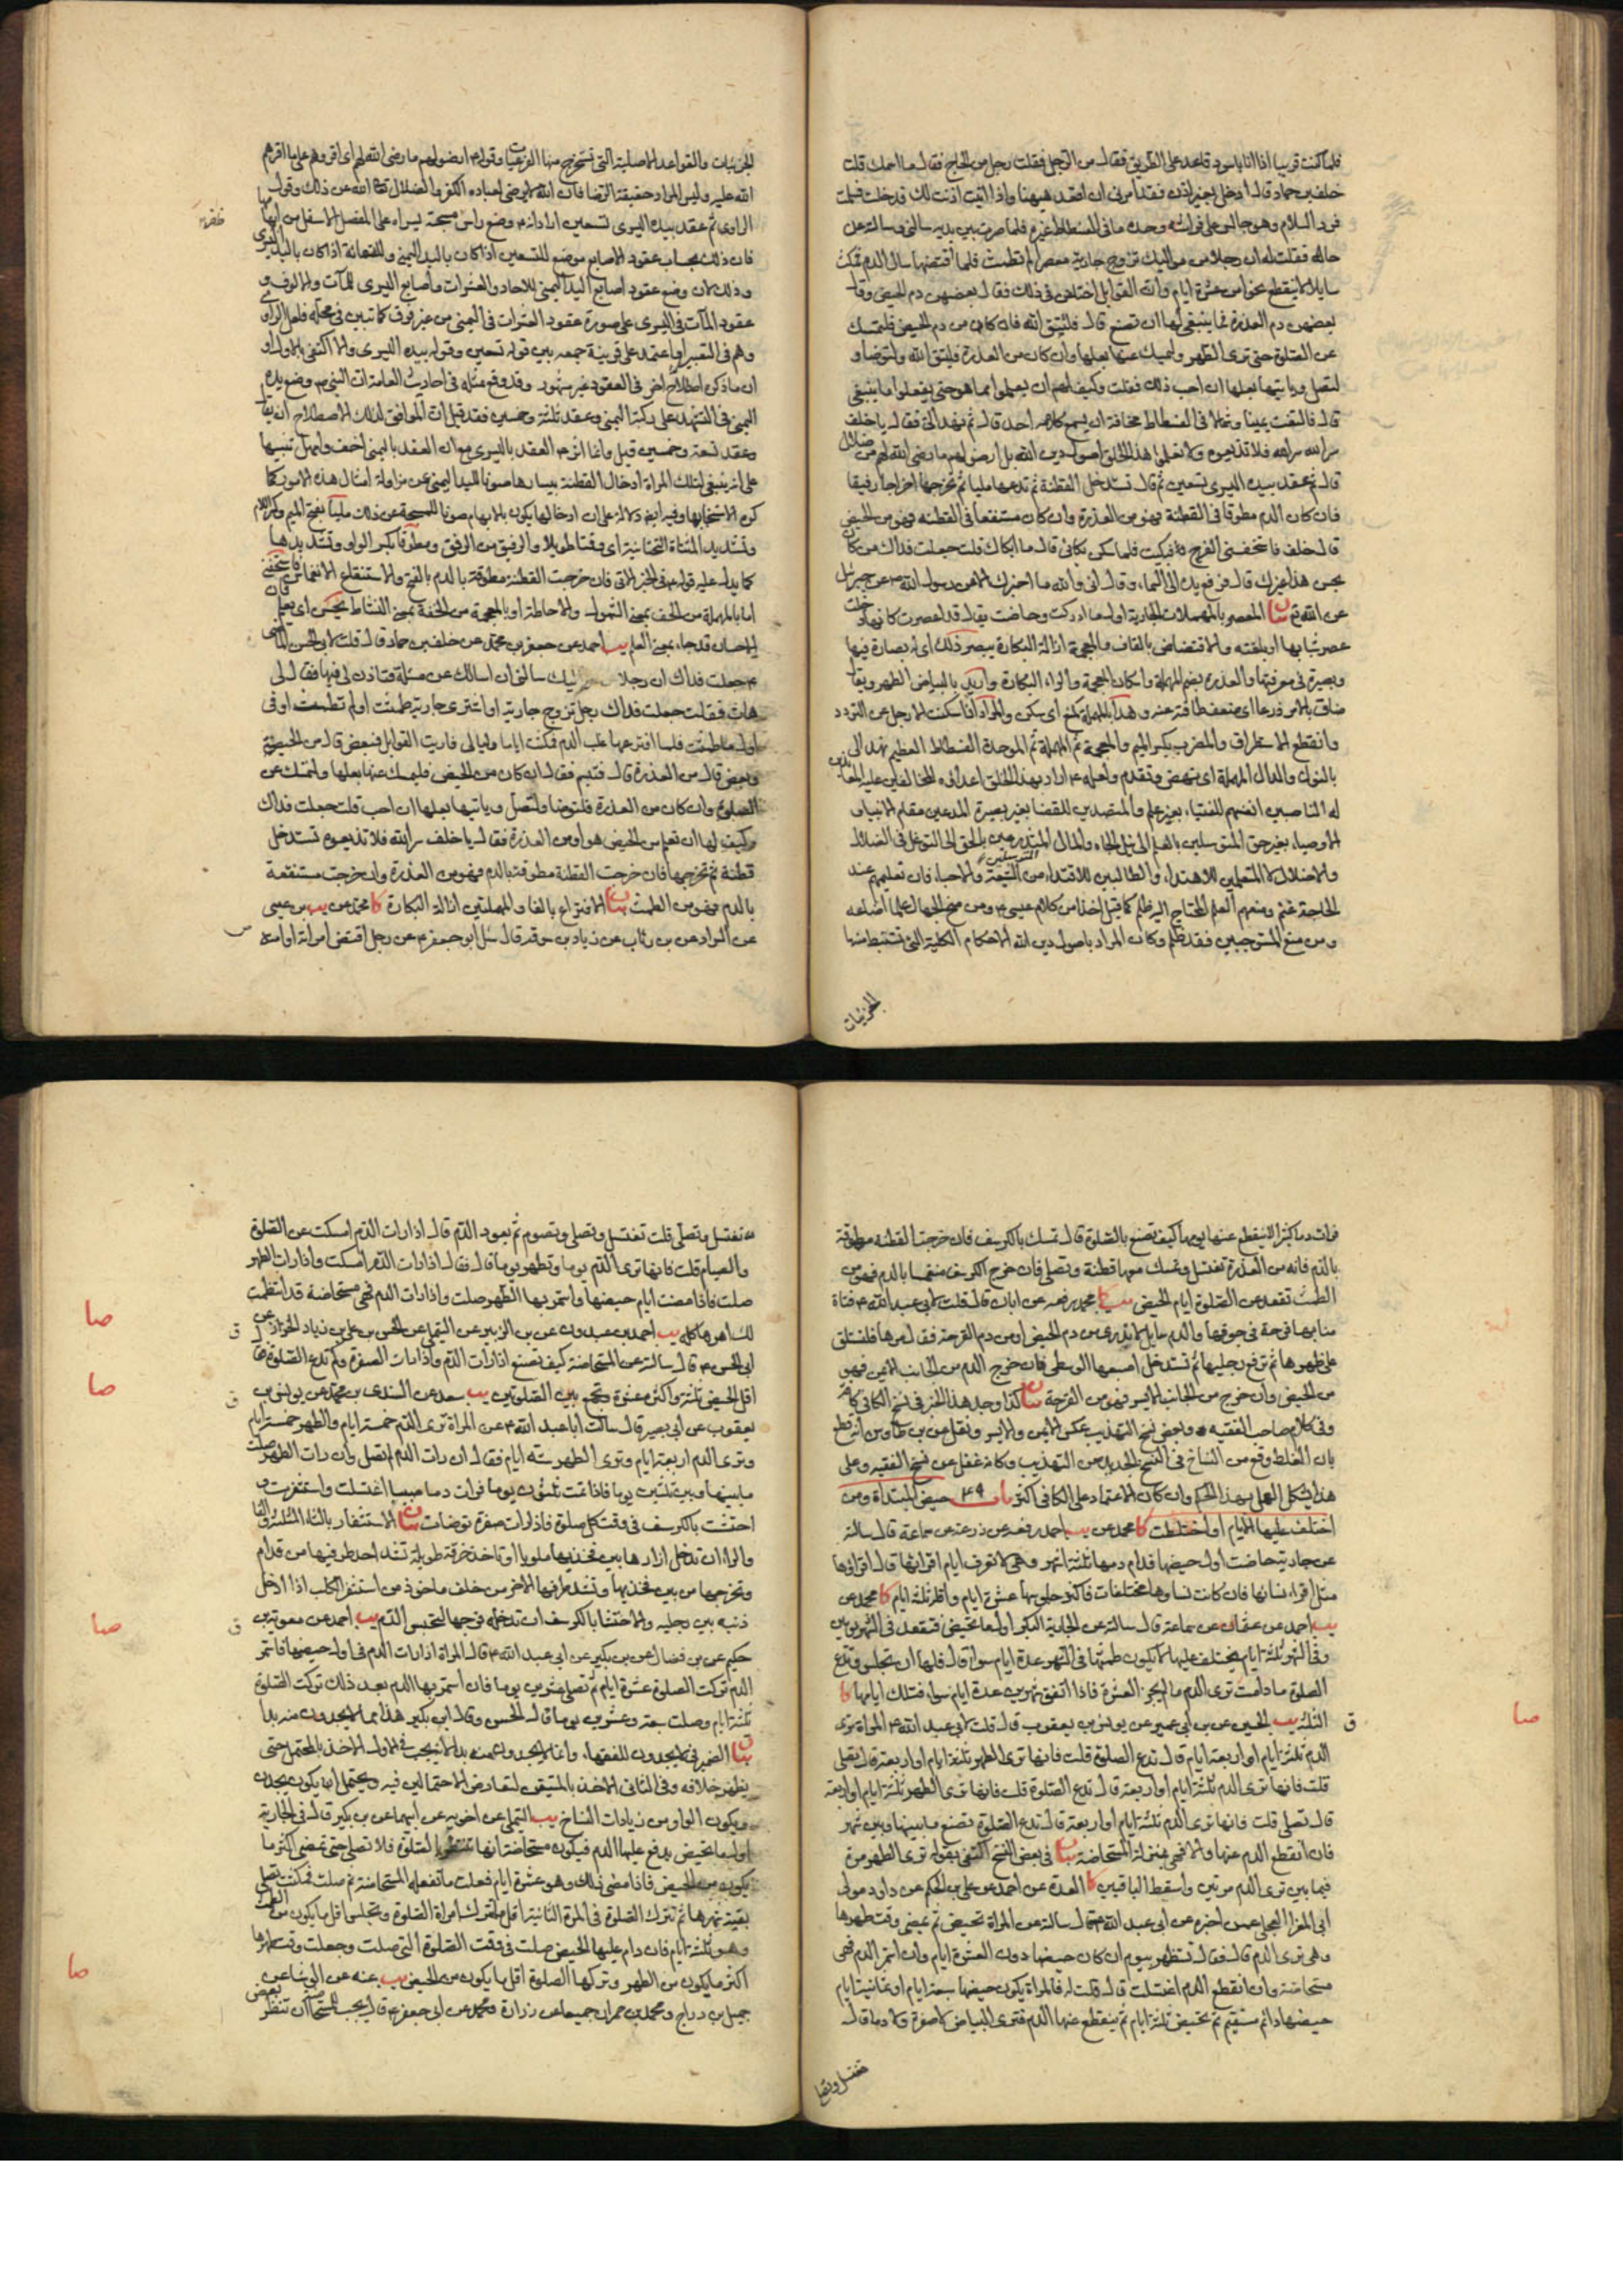 فلما كنت قريبا اذا انا باسود قاعد على الطريق فقال من الرجل فقلت رجل من الحاج فقال ما اسمك قلت
خلف بن حماد قال ادخل بغير اذن فقد امرني ان اقعد هيهنا واذا اتيت اذنت لك فدخلت فسلمت
فرد السلام وهو جالس على فراشه وحده ما في الفسطاط غيره فلما صرت بين يديه سألني وسألته عن
حاله فقلت له ان رجلا من مواليك تزوج جارية معصرا لم تطمث فلما اقتضها سال الدم فمكث
سايلا لا ينقطع نحوا من عشرة ايام وان القوابل اختلفن في ذلك فقال بعضهن دم الحيض وقال
بعضهن دم العذرة فما ينبغي لها ان تصنع قال فلتتق الله فان كان من دم الحيض فلتمسك
عن الصلوة حتى ترى الطهر وليمسك عنها بعلها وان كان من العذرة فليتق الله ولتتوضأ و
لتصل ويأتيها بعلها ان احب ذلك فقلت وكيف لهم ان يعلموا مما هو حتى يفعلوا ما ينبغي
قال فالتفت يمينا وشمالا في الفسطاط مخافة ان يسمع كلامه احد قال ثم نهد الي فقال يا خلف
سر الله سر الله فلا تذيعوه ولا تعلموا هذا الخلق اصول دين الله بل ارضوا لهم ما رضي الله لهم من ضلال
قال ثم عقد بيده اليسرى تسعين ثم قال تستدخل القطنة ثم تدعها مليا ثم تخرجها اخراجا رفيقا
فان كان الدم مطوقا في القطنة فهو من العذرة وان كان مستنقعا في القطنة فهو من الحيض
قال خلف فاستخفني الفرح فبكيت فلما سكن بكائي قال ما ابكاك قلت جعلت فداك من كان
يحسن هذا غيرك قال فرفع يده الى السماء وقال اني والله ما اخبرك الا عن رسول الله ص عن جبرئيل
عن الله تع بيان المعصر بالمهملات الجارية اول ما ادركت وحاضت يقال قد اعصرت كأنها دخلت
عصر شبابها او بلغته والاقتضاض بالقاف والمعجمة ازالة البكارة يبصر ذلك اي له بصارة فيها
وبصيرة في معرفتها والعذرة بضم المهملة واسكان المعجمة والراء البكارة واريد بالبياض الطهر ويقال
ضاق بالامر ذرعا اي ضعف طاقته عنه
وانقطع الاستطراق والمضرب بكسر الميم والمعجمة ثم المهملة ثم الموحدة الفسطاط العظيم نهد الي
بالنون والدال المهملة اي نهض وتقدم ولعله ع اراد بهذا الخلق اعداءه المخالفين عليه الجاحدين
له الناصبين انفسهم للفتياء بغير علم والمتصدين للقضا بغير بصيرة المدعين مقام الانبياء و
الاوصياء بغير حق المتوسلين بالعلم الى نيل الجاه والمال
والاضلال لا المتعلمين للاهتداء والطالبين للاقتداء من الشيعة والاحباء فان تعليمهم عند
الحاجة غنم ومنعهم العلم المحتاج اليه ظلم كما قيل اخذا من كلام عيسى ع ومن منح الجهال علما اضاعه
ومن منع المستوجبين فقد ظلم وكان المراد باصول دين الله الاحكام الكلية التي تستنبط منها
الجزئيات
الجزئيات والقواعد الاصلية التي تستخرج منها الفرعيات وقوله ع ارضوا لهم ما رضي الله لهم اي اقروهم على ما اقرهم
الله عليه وليس المراد حقيقة الرضا فان الله لا يرضى لعباده الكفر والضلال تعالى الله عن ذلك وقول
الراوي ثم عقد بيده اليسرى تسعين اراد انه ع وضع راس مسبحة يسراه على المفصل الاسفل من ابهامها
فان ذلك بحساب عقود الاصابع موضوع للتسعين اذا كان باليد اليمنى وللتسعمائة اذا كان باليد اليسرى
وذلك لان وضع عقود اصابع اليد اليمنى للاحاد والعشرات واصابع اليسرى للمآت والالوف و
عقود المآت في اليسرى على صورة عقود العشرات في اليمنى من غير فرق كما تبين في محله فلعل الراوي
وهم في التعبير او اعتمد على قرينة جمعه بين قوله تسعين وقوله بيده اليسرى والا اكتفى بالاول او
ان ما ذكره اصطلاح اخر في العقود غير مشهور وقد وقع مثله في احاديث العامة ان النبي ص وضع يده
اليمنى في التشهد على ركبته اليمنى وعقد ثلثة وخمسين فقد قيل ان الموافق لذلك الاصطلاح ان يقال
وعقد تسعة وخمسين قيل وانما اثر ع العقد باليسرى مع ان العقد باليمنى اخف واسهل تنبيها
على انه ينبغي لتلك المراة ادخال القطنة بيسارها صونا لليد اليمنى عن مزاولة امثال هذه الامور كما
كره الاستنجاء بها وفيه ايضا دلالة على ان ادخالها يكون بالابهام صونا للمسبحة عن ذلك مليا بفتح الميم وكسر اللام
وتشديد المثناة التحتانية اي وقتا طويلا والرفيق من الرفق ومطوقا بكسر الواو وتشديدها
كما يدل عليه قوله ع في الخبر الاتي فان خرجت القطنة مطوقة بالدم بالفتح والاستنقاع الانغماس فاستخفني
اما بالمهملة من الحف بمعنى الشمول والاحاطة او بالمعجمة من الخفة بمعنى النشاط يحسن اي يعلم فان
الاحسان قد جاء بمعنى العلم يب احمد عن جعفر بن محمد عن خلف بن حماد قال قلت لابي الحسن الماضي
ع جعلت فداك ان رجلا من مواليك سألني ان اسألك عن مسئلة فتأذن لي فيها فقال لي
هات فقلت جعلت فداك رجل تزوج جارية او اشترى جارية طمثت او لم تطمث او في
اول ما طمثت فلما افترعها غلب الدم فمكث اياما وليالي فاريت القوابل فبعض قال من الحيضة
وبعض قال من العذرة قال فتبسم فقال ان كان من الحيض فليمسك عنها بعلها ولتمسك عن
الصلوة وان كان من العذرة فلتتوضأ ولتصل وياتيها بعلها ان احب قلت جعلت فداك
وكيف لها ان تعلم من الحيض هو او من العذرة فقال يا خلف سر الله فلا تذيعوه تستدخل
قطنة ثم تخرجها فان خرجت القطنة مطوقة بالدم فهو من العذرة وان خرجت مستنقعة
بالدم فهو من الطمث بيان الافتراع بالفاء والمهملتين ازالة البكارة كا محمد عن يب بن عيسى
عن السراد عن بن رئاب عن زياد بن سوقة قال سئل ابو جعفر ع عن رجل اقتض امراته او امته
فرات دما كثيرا لا ينقطع عنها يومها كيف تصنع بالصلوة قال تمسك بالكرسف فان خرجت القطنة مطوقة
بالدم فانه من العذرة تغتسل وتمسك معها قطنة وتصلي فان خرج الكرسف منغمسا بالدم فهو من
الطمث تقعد عن الصلوة ايام الحيض يب كا محمد رفعه عن ابان قال قلت لابي عبد الله ع فتاة
منا بها قرحة في جوفها والدم سايل لا تدري من دم الحيض او من دم القرحة فقال مرها فلتستلق
على ظهرها ثم ترفع رجليها ثم تستدخل اصبعها الوسطى فان خرج الدم من الجانب الايمن فهو
من الحيض وان خرج من الجانب الايسر فهو من القرحة بيان كذا وجد هذا الخبر في نسخ الكافي كافة
وفي كلام صاحب الفقيه وبعض نسخ التهذيب عكس الايمن والايسر ونقل عن بن طاوس انه قطع
بان الغلط وقع من النساخ في النسخ الجديدة من التهذيب وكانه غفل عن نسخ الفقيه وعلى
هذا يشكل العمل بهذا الحكم وان كان الاعتماد على الكافي اكثر باب ٤٩ حيض المبتدأة ومن
اختلف عليها الايام او اختلطت كا محمد عن يب احمد رفعه عن زرعة عن سماعة قال سالته
عن جارية حاضت اول حيضها فدام دمها ثلثة اشهر وهي لا تعرف ايام اقرائها قال اقراؤها
مثل اقراء نسائها فان كانت نساؤها مختلفات فاكثر جلوسها عشرة ايام واقله ثلثة ايام كا محمد عن
يب احمد عن عثمان عن سماعة قال سالته عن الجارية البكر اول ما تحيض فتقعد في الشهر يومين
وفي الشهر ثلثة ايام يختلف عليها لا يكون طمثها في الشهر عدة ايام سواء قال فلها ان تجلس وتدع
الصلوة ما دامت ترى الدم ما لم يجز العشرة فاذا اتفق شهرين عدة ايام سواء فتلك ايامها كا
الثلثة يب الحسين عن بن ابي عمير عن يونس بن يعقوب قال قلت لابي عبد الله ع المراة ترى
الدم ثلثة ايام او اربعة ايام قال تدع الصلوة قلت فانها ترى الطهر ثلثة ايام او اربعة قال تصلي
قلت فانها ترى الدم ثلثة ايام او اربعة قال تدع الصلوة قلت فانها ترى الطهر ثلثة ايام او اربعة
قال تصلي قلت فانها ترى الدم ثلثة ايام او اربعة قال تدع الصلوة تصنع ما بينها وبين شهر
فان انقطع الدم عنها والا فهي بمنزلة المستحاضة بيان في بعض النسخ اكتفى بقوله ترى الطهر مرة
فيما بين ترى الدم مرتين واسقط الباقيين كا العدة عن احمد عن علي بن الحكم عن داود مولى
ابي المغرا العجلي عمن اخبره عن ابي عبد الله ع قال سالته عن المراة تحيض ثم يمضي وقت طهرها
وهي ترى الدم قال فقال تستظهر بيوم ان كان حيضها دون العشرة ايام وان استمر الدم فهي
مستحاضة وان انقطع الدم اغتسلت قال قلت له فالمراة يكون حيضها سبعة ايام او ثمانية ايام
حيضها دائم مستقيم ثم تحيض ثلثة ايام ثم ينقطع عنها الدم فترى البياض لا صفرة ولا دما قال
تغتسل وتصلي
تغتسل وتصلي قلت تغتسل وتصلي وتصوم ثم يعود الدم قال اذا رات الدم امسكت عن الصلوة
والصيام قلت فانها ترى الدم يوما وتطهر يوما قال فقال اذا رات الدم امسكت واذا رات الطهر
صلت فاذا مضت ايام حيضها واستمر بها الطهر صلت واذا رات الدم فهي مستحاضة قد انتظمت
لك امرها كله يب احمد بن عبدون عن بن الزبير عن التيملي عن الحسن بن علي بن زياد الخزاز عن
ابي الحسن ع قال سالته عن المستحاضة كيف تصنع اذا رات الدم واذا رات الصفرة وكم تدع الصلوة فقال
اقل الحيض ثلثة واكثره عشرة وتجمع بين الصلوتين يب سعد عن السندي بن محمد عن يونس بن
يعقوب عن ابي بصير قال سالت ابا عبد الله ع عن المراة ترى الدم خمسة ايام والطهر خمسة ايام
وترى الدم اربعة ايام وترى الطهر ستة ايام فقال ان رات الدم لم تصل وان رات الطهر صلت
ما بينها وبين ثلثين يوما فاذا تمت ثلثون يوما فرات دما صبيبا اغتسلت واستثفرت و
احتشت بالكرسف في وقت كل صلوة فاذا رات صفرة توضات بيان الاستثفار بالثاء المثلثة والفاء
والراء ان تدخل ازارها بين فخذيها ملويا او تاخذ خرقة طويلة تشد احد طرفيها من قدام
وتخرجها من بين فخذيها وتشد طرفها الاخر من خلف ماخوذ من استثفر الكلب اذا ادخل
ذنبه بين رجليه والاحتشاء بالكرسف ان تدخله فرجها لتحبس الدم يب احمد عن معوية بن
حكيم عن بن فضال عن بن بكير عن ابي عبد الله ع قال المراة اذا رات الدم في اول حيضها فاستمر
الدم تركت الصلوة عشرة ايام ثم تصلي عشرين يوما فان استمر بها الدم بعد ذلك تركت الصلوة
ثلثة ايام وصلت سبعة وعشرين يوما قال الحسن وقال ابن بكير هذا مما لا يجدون منه بدا
بيان الضمير في لا يجدون للفقهاء وانما لا يجدون منه بدا لانه يجب في الاول الاخذ بالمحتمل حتى
يظهر خلافه وفي الثاني الاخذ بالمتيقن لتعارض الاحتمالين فيه ويحتمل ان يكون يجدن
ويكون الواو من زيادات النساخ يب التيملي عن اخويه عن ابيهما عن بن بكير قال في الجارية
اول ما تحيض يدفع عليها الدم فيكون مستحاضة انها تنتظر بالصلوة فلا تصلي حتى تمضي اكثر ما
يكون من الحيض فاذا مضى ذلك وهو عشرة ايام فعلت ما تفعله المستحاضة ثم صلت فمكثت تصلي
بقية شهرها ثم تترك الصلوة في المرة الثانية اقل ما تترك امراة الصلوة وتجلس اقل ما يكون من الطمث
وهو ثلثة ايام فان دام عليها الحيض صلت في وقت الصلوة التي صلت وجعلت وقت طهرها
اكثر ما يكون من الطهر وتركها الصلوة اقل ما يكون من الحيض يب عنه عن الوشاء عن
جميل بن دراج ومحمد بن حمران جميعا عن زرارة ومحمد عن ابي جعفر ع قال يجب للمستحاضة ان تنظر بعض
صا
صا
صا
صا
صا
ق
ق
ق
ق